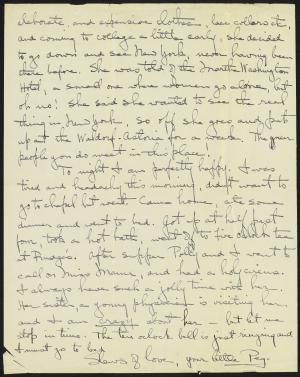 elaborate, and expensive clothes, her collars etc,
and coming to college a little early, she decided
to go down and see New York, never having been
there before. She was told of the Martha Washington
Hotel, a small one where women go alone, but
oh no! She said she wanted to see the real
thing in New York, so off she goes and put
up at the Waldorf-Astoria for a week. The queer
people you do meet in this place!
To night I am perfectly happy. I was
tired and headachy this morning, didn't want to
go to chapel but went. Came home, ate some
dinner and went to bed. Got up at half past
four, took a hot bath, went to five o'clock tea
at Pudge's. After supper Poll and I went to
call on Miss, and had a hot time.
I always have such a jolly time with her.
Her sister, a young physician is visiting her
and I am crazy about her – but let me
stop in time. The ten o'clock bell is just ringing and
I must go to bed.
Lots of love, your little Peg.